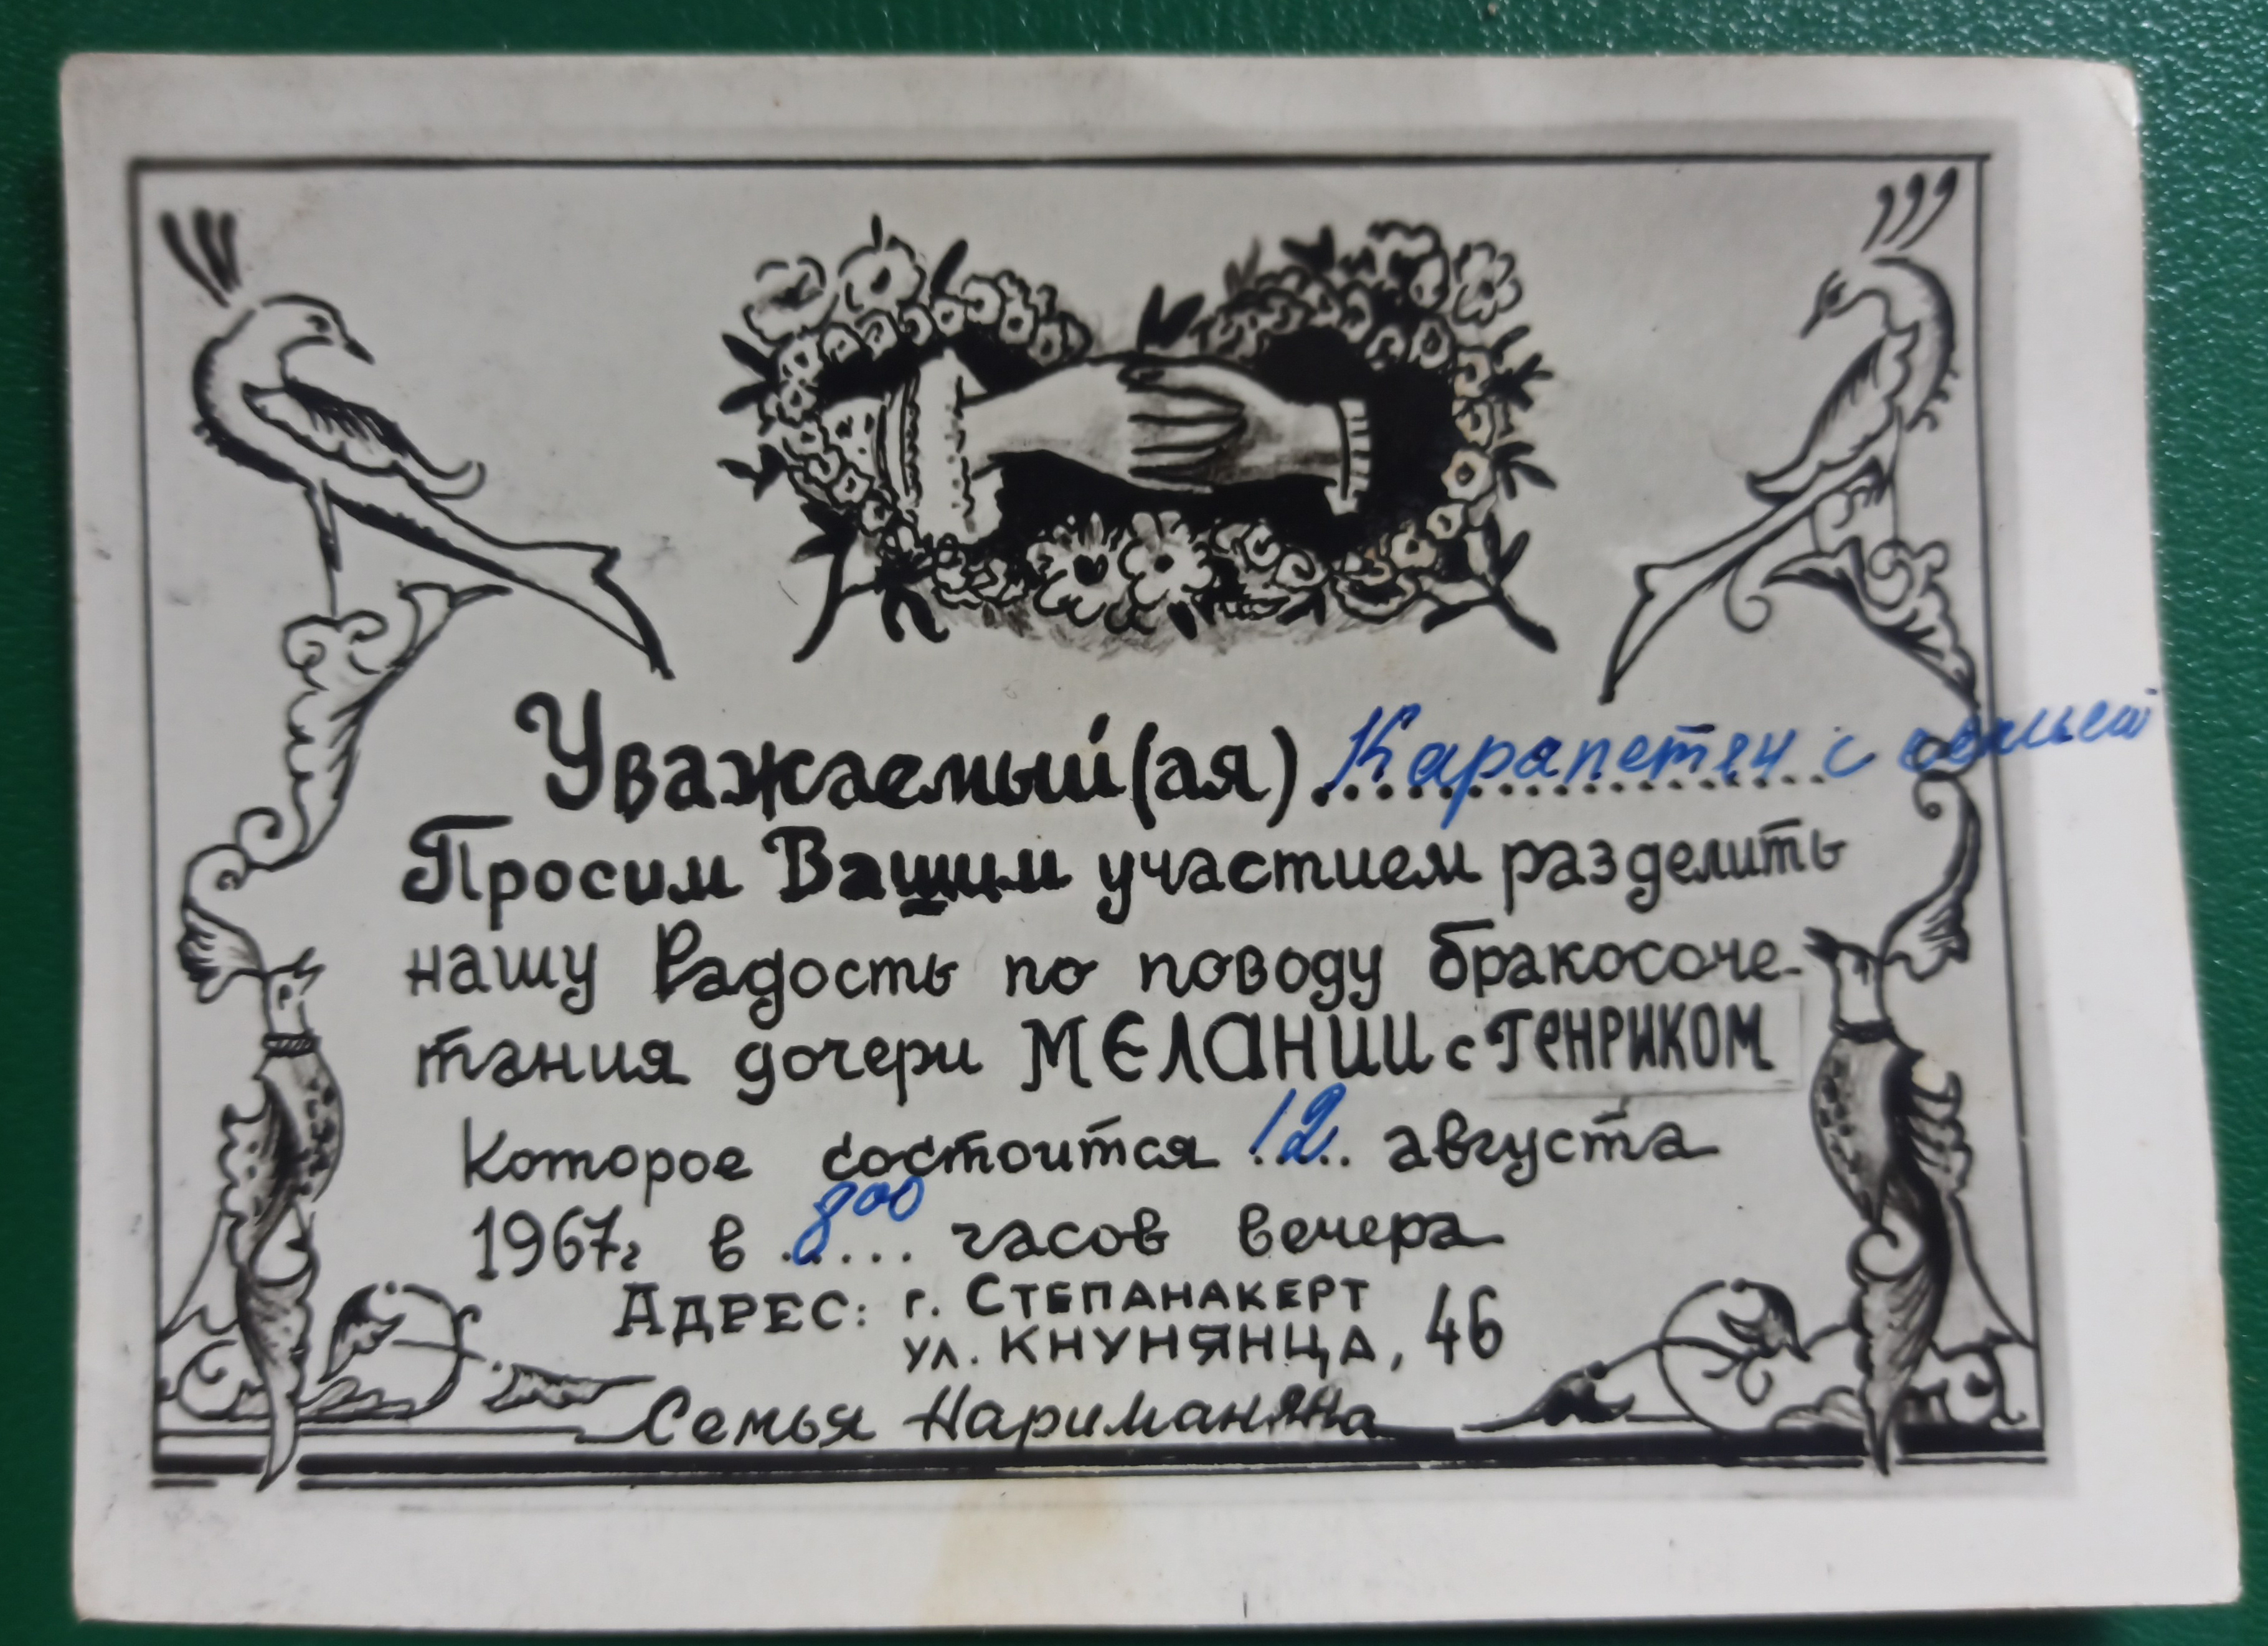 Уважаемый(ая) Карапетян с семьей
Просим Вашим участием разделить
нашу Радость по поводу бракосоче-
тания дочери МЕЛАНИИ с ГЕНРИКОМ
Которое состоится 12 августа
1967г в 8 00 часов вечера
АДРЕС: г. СТЕПАНАКЕРТ
ул. КНУНЯНЦА, 46
Семья Нариманяна